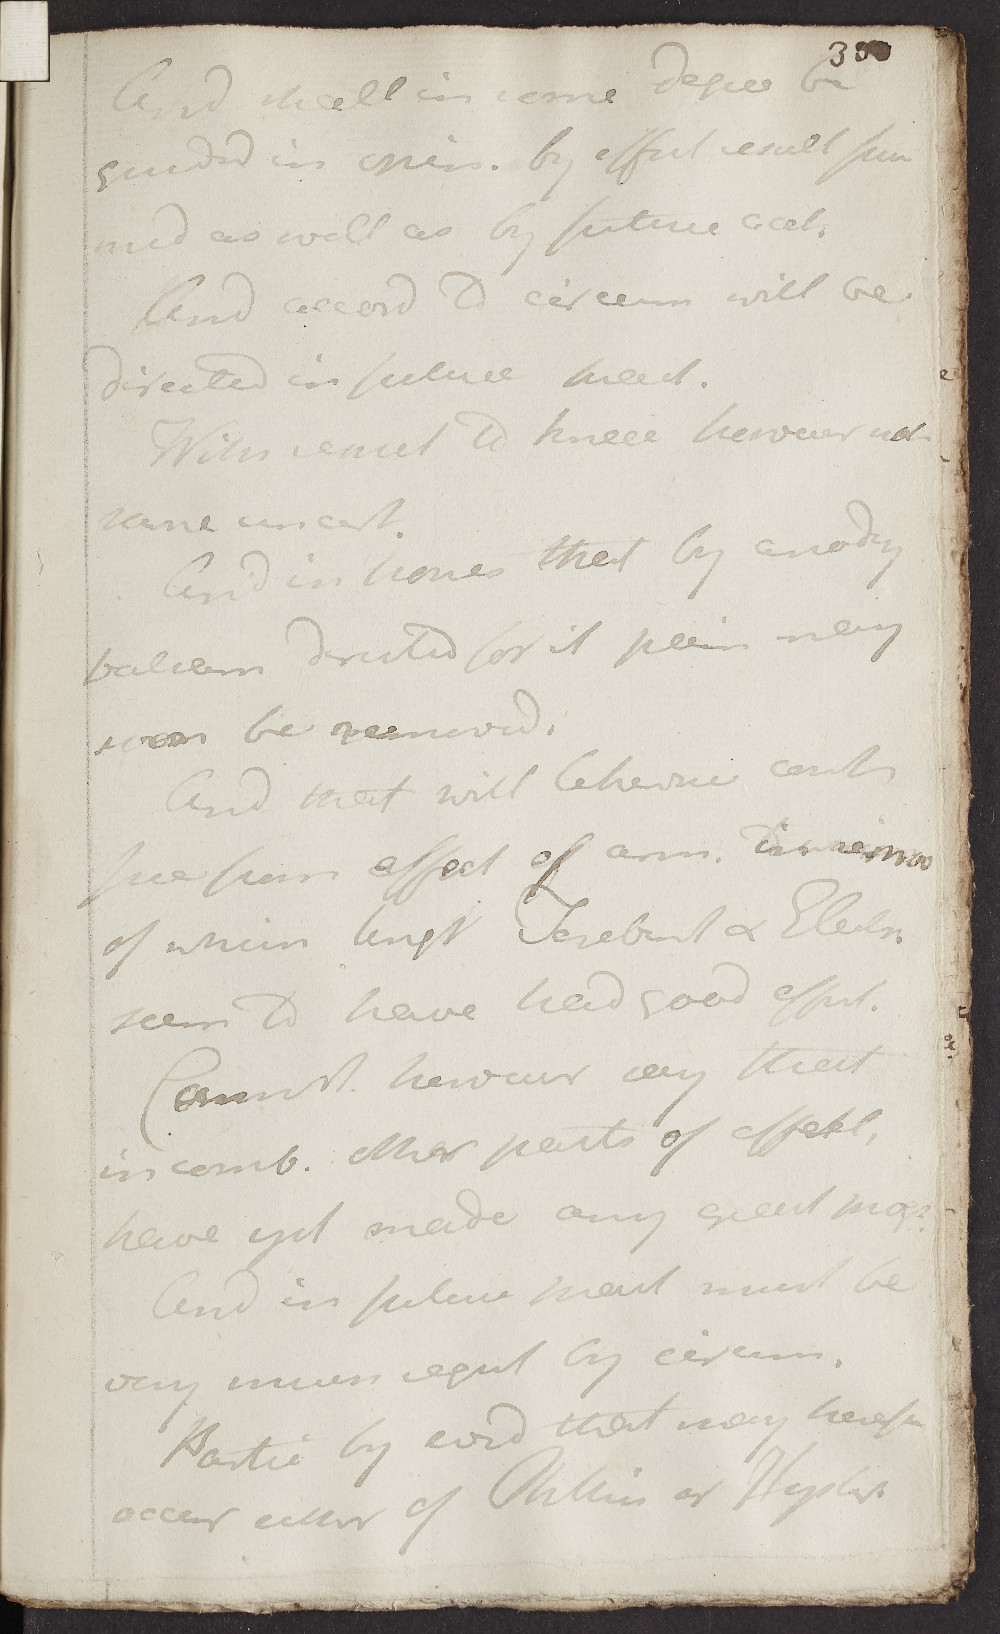 330
And shall in some degree be
guided in opin. by effect result from
med as well as by future acct.
And accord to circum will be
directed in future treat.
With respect to knee however not
same uncert.
And in hopes that by anody
balsam directed for it pain may
soon be removed.
And that will likewise contin
free from effect of arm.
of which Ungt Terebint & Electr.
seem to have had good effect.
Cannot however say that
in comb. other parts of affect,
have yet made any great progr.
And in future treat must be
very much regul by circum.
Partic by evid that may hereafter
occur either of Phthis or Hyster.